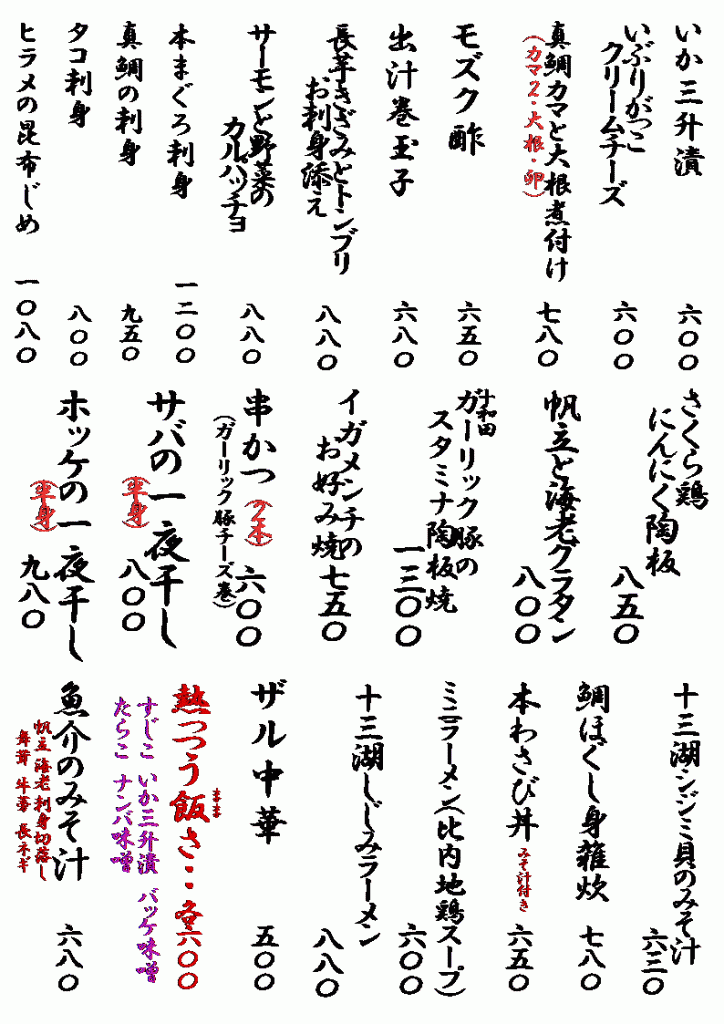 いか三升漬
六〇〇
いぶりがっこ
クリームチーズ
六〇〇
真鯛カマと大根煮付け
(カマ2・大根・卵)
七八〇
モズク酢
六五〇
出汁巻玉子
六八〇
長芋きざみとトンブリ
お刺身添え
八八〇
サーモンと野菜の
カルパッチョ
八八〇
本まぐろ刺身
一二〇〇
真鯛の刺身
九五〇
タコ刺身
八〇〇
ヒラメの昆布じめ
一〇八〇
さくら鶏
にんにく陶板
八五〇
帆立と海老グラタン
八〇〇
十和田
ガーリック豚の
スタミナ陶板焼
一三〇〇
イガメンチの
お好み焼
七五〇
串かつ(2本)
(ガーリック豚チーズ巻)
六〇〇
サバの一夜干し
(半身)
八〇〇
ホッケの一夜干し
(半身)
九八〇
十三湖シジミ貝のみそ汁
六三〇
鯛ほぐし身雑炊
七八〇
本わさび丼
みそ汁付き
六五〇
ミニラーメン(比内地鶏スープ)
六〇〇
十三湖しじみラーメン
八八〇
ザル中華
五〇〇
熱っつう飯さ・・各六〇〇
まま
すじこ いか三升漬 バッケ味噌
たらこ ナンバ味噌
魚介のみそ汁
帆立 海老 刺身切落し
舞茸 牛蒡 長ネギ
六八〇